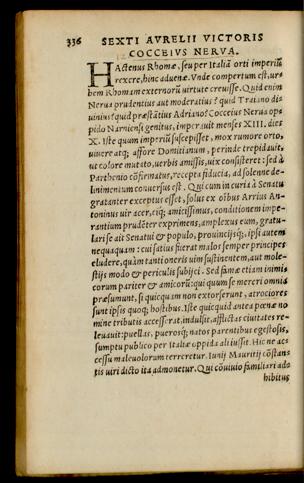 336 SEXTI AVRELII VICTORIS
COCCEIVS NERVA.
HActenus Rhomæ, seu per Italiã orti imperiũ
rexere, hinc aduenæ. Vnde compertum est, ur=
bem Rhomam externorũ uirtute creuisse. Quid enim
Nerua prudentius aut moderatius? quid Traiano di=
uinius? quid præstãtius Adriano? Cocceius Nerua op=
pido Narniensi genitus, imperauit menses XIII. dies
X. Iste quum imperiũ suscepisset, mox rumore orto,
uiuere atq; affore Domitianum, perinde trepidauit,
ut colore mutato, uerbis amissis, uix consisteret: sed à
Parthenio cõfirmatus, recepta fiducia, ad solenne de=
linimentum conuersus est. Qui cum in curia à Senatu
gratanter exceptus esset, solus ex oĩbus Arrius An=
toninus uir acer, eiq; amicissimus, conditionem impe=
rantium prudẽter exprimens, amplexus eum, gratu=
lari se ait Senatui & populo, prouincijsq;, ipsi autem
nequaquam: cui satius fuerat malos semper principes
eludere, quàm tanti oneris uim sustinentem, aut mole=
stijs modo & periculis subijci. Sed famæ etiam inimi
corum pariter & amicorũ: qui quum se mereri omnia
præsumunt, si quicquam non extorserunt, atrociores
sunt ipsis quoq; hostibus. Iste quicquid antea pœnæ no
mine tributis accesserat, indulsit. afflictas ciuitates re=
leuauit: puellas, puerosq; natos parentibus egestosis,
sumptu publico per Italiæ oppida ali iussit. Hic ne ac=
cessu maleuolorum terreretur, Iunij Mauritij cõstan=
tis uiri dicto ita admonetur. Qui cõuiuio familiari ad=
hibitus